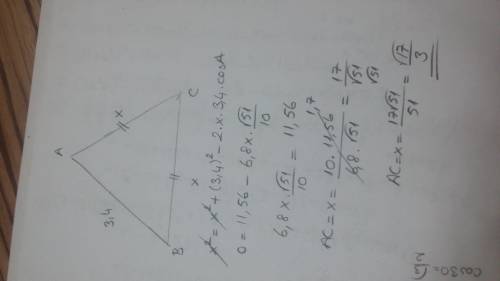 A
x
C
3,4
x
B
x² = x² + (3,4)² - 2.x.3,4.cosA
0 = 11,56 - 6,8x. √51/10
6,8x. √51/10 = 11,56
AC = x = 10.11,56/6,8.√51 = 17/√51
1,7
√51
AC = x = 17√51/51 = √17/3
Cos30=